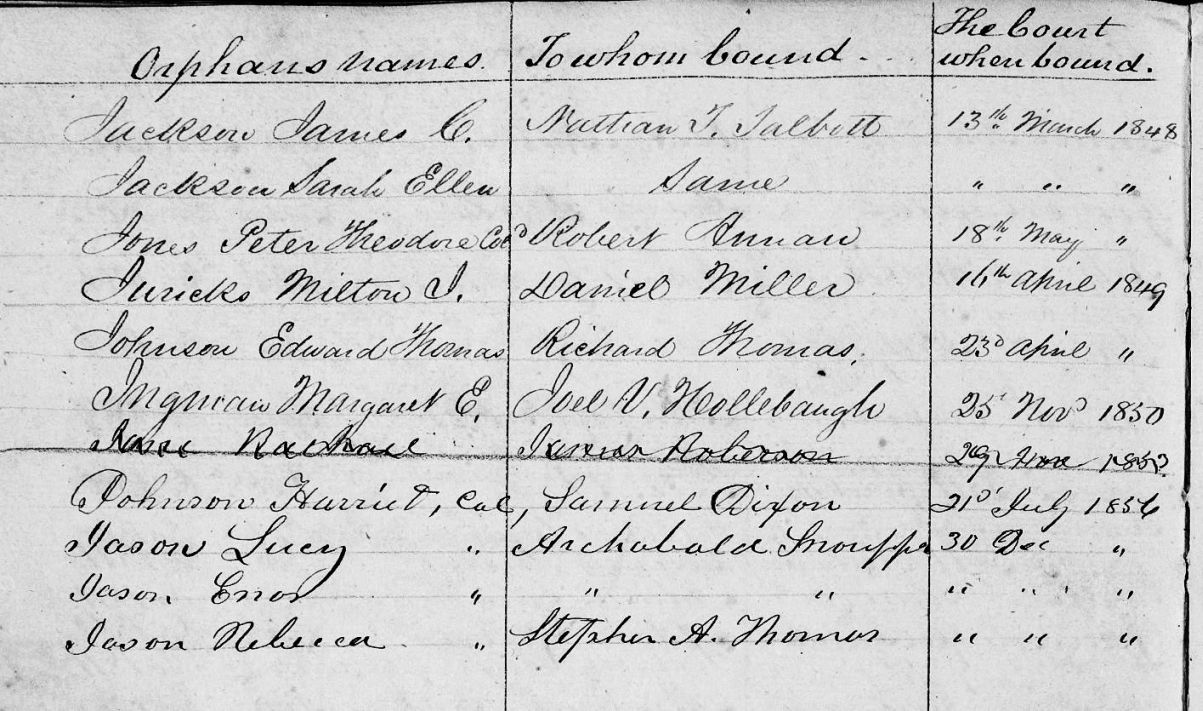 Orphans names. To whom bound. The Court when bound.
Jackson James C. Nathan T. Talbott 13th March 1848
Jackson Sarah Ellen Same " " "
Jones Peter Theodore Cold Robert Annan 18th May "
Juricks Milton J. Daniel Miller 16th April 1849
Johnson Edward Thomas Richard Thomas. 23d April "
Ingman Margaret E. Joel V. Hollebaugh 25 Novr 1850
Roberson 29
Johnson Harriet, Col, Samuel Dixon 21st July 1856
Jason Lucy " Archabald Snouffer 30 Dec "
Jason Enos " " " " " "
Jason Rebecca " Stephen A. Thomas " " "